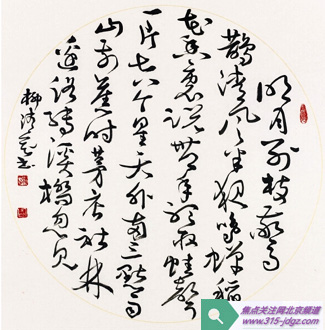 明月别枝惊
鹊清风半夜鸣蝉稻
花香里说丰年听取蛙声
一片七八个星天外两三点雨
山前旧时茅店社林
边路转溪桥忽见
柳清
书
焦点关注网北京频道
www.315-jdgz.com